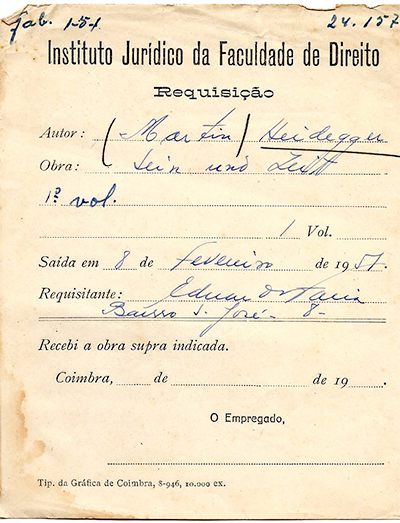 Gab. 1-5-1 24.157
Instituto Jurídico da Faculdade de Direito
Requisição
Autor: (Martin) Heidegger
Obra: Sein und Zeit
1º vol.
1 Vol.
Saída em 8 de Fevereiro de 1951
Requisitante: Faria
Bairro S. José - 8 -
Recebi a obra supra indicada.
Coimbra, de de 19
O Empregado,
Tip. da Gráfica de Coimbra, 8-946, 10.000 ex.